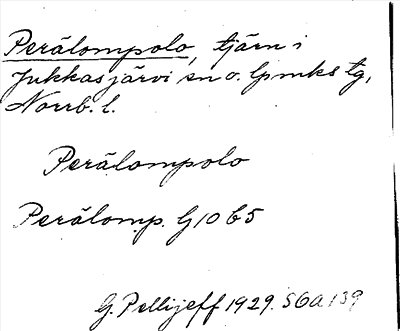 Perälompolo, tjärn i
Jukkasjärvi sn o. lpmks tg,
Norrb. l.
Perälompolo
Perälomp. G 10 b5
G. Pellijeff 1929. SGA 139